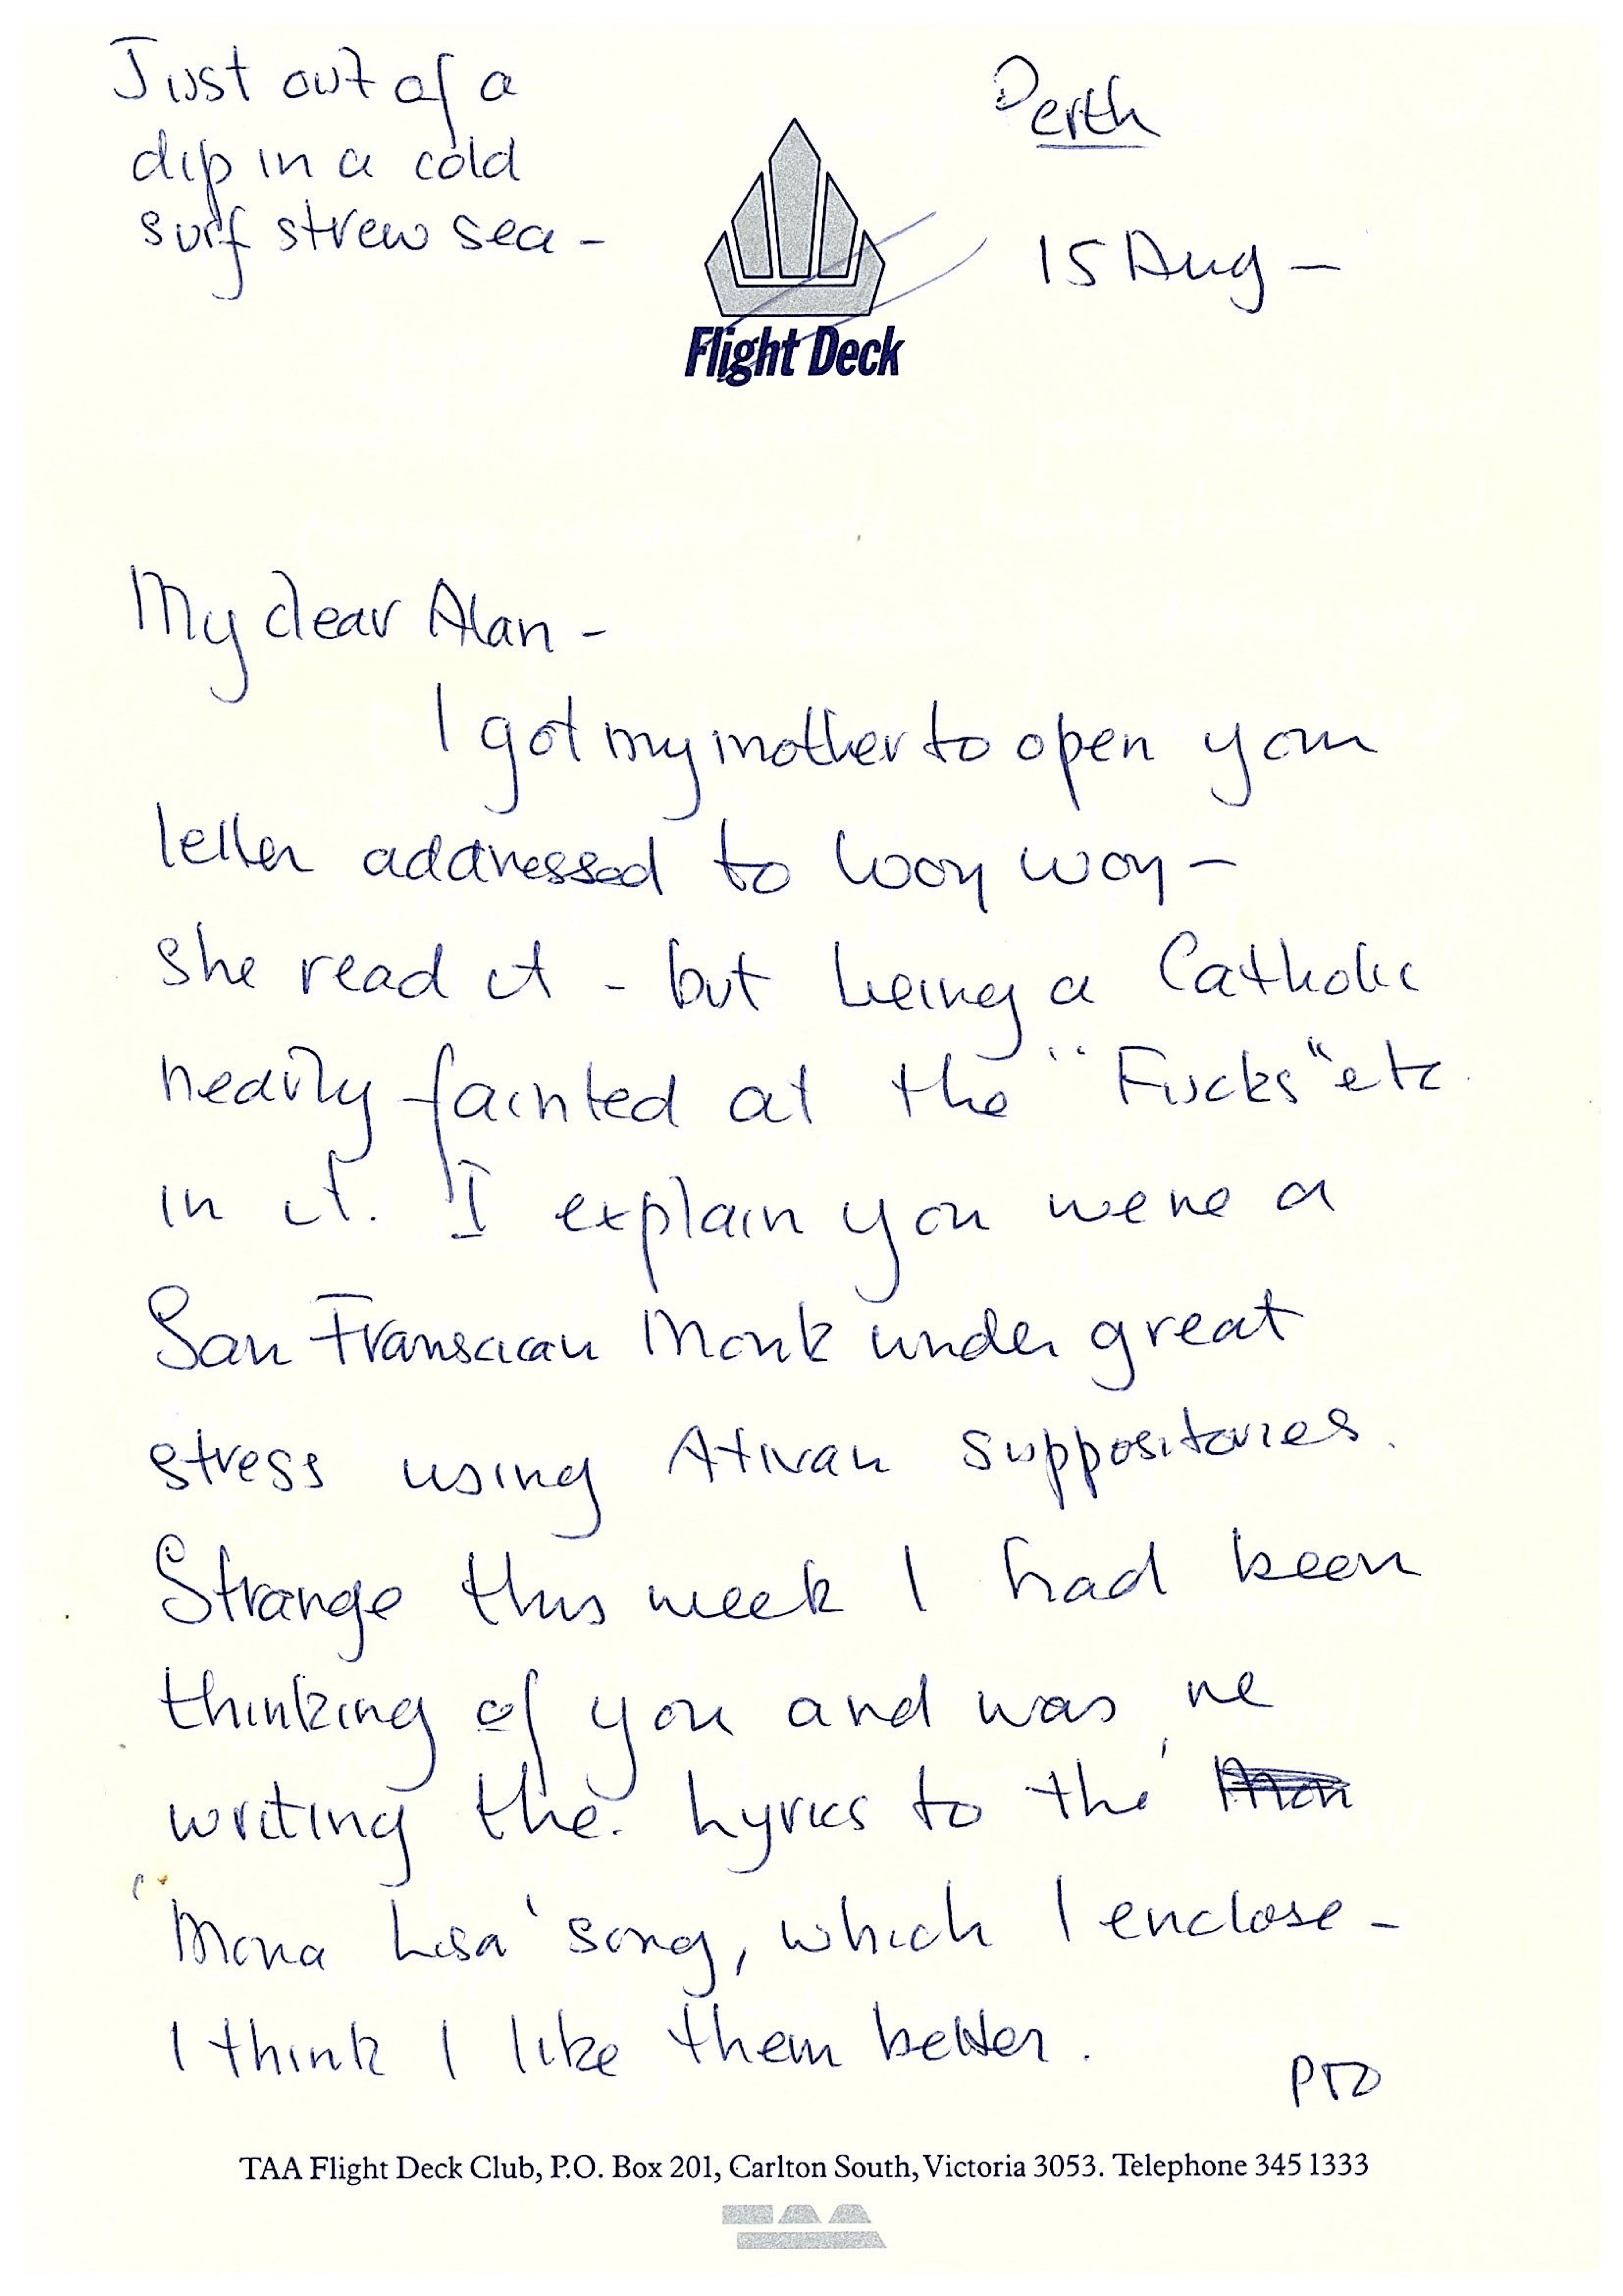 Just out of a
dip in a cold
surf strew sea –
Perth
15 Aug –
Flight Deck
My dear Alan –
I got my mother to open your
letter addressed to Woy Woy –
she read it – but being a Catholic
nearly fainted at the "Fucks" etc
in it. I explain you were a
San Fransican Monk under great
stress using Ativan suppositories.
Strange this week I had been
thinking of you and was, re
writing the. Lyrics to the Mon
"Mona Lisa' song, which I enclose –
I think I like them better.
PTO
TAA Flight Deck Club, P.O. Box 201, Carlton South, Victoria 3053. Telephone 345 1333
TAA